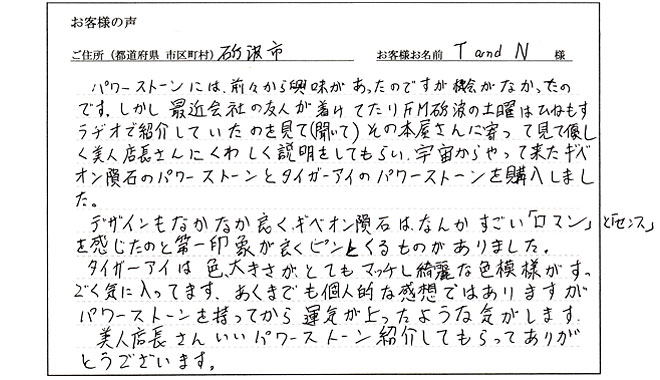 お客様の声
ご住所（都道府県 市区町村） 砺波市 お客様お名前 T and N 様
パワーストーンには、前々から興味があったのですが機会がなかったの
です。しかし最近会社の友人が着けてたりFM砺波の土曜はひねもす
ラヂオで紹介していたのを見て(聞いて)その本屋さんに寄って見て優し
く美人店長さんにくわしく説明をしてもらい、宇宙からやって来たギベ
オン隕石のパワーストーンとタイガーアイのパワーストーンを購入しまし
た。
デザインもなかなか良く、ギベオン隕石は、なんかすごい「ロマン」と「センス」
を感じたのと第一印象が良くピンとくるものがありました。
タイガーアイは色、大きさが、とてもマッチし綺麗な色模様がすっ
ごく気に入ってます。あくまでも個人的な感想ではありますが
パワーストーンを持ってから運気が上ったような気がします。
美人店長さんいいパワーストーン紹介してもらってありが
とうございます。